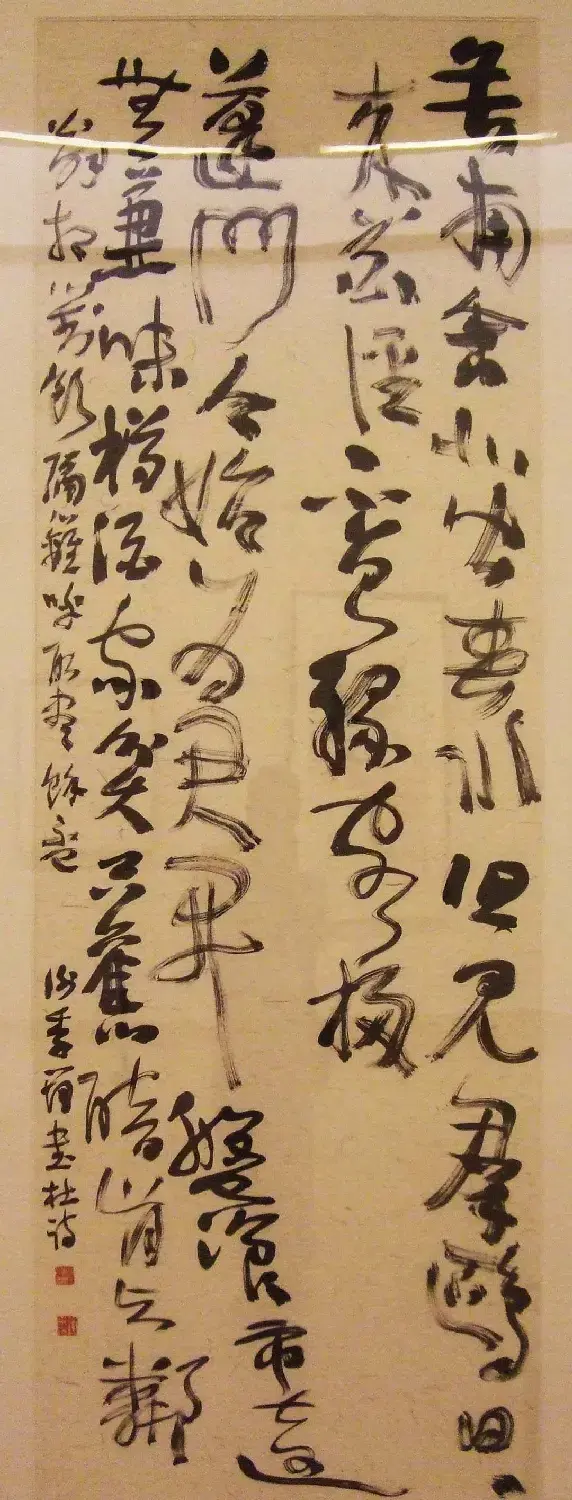 舍南舍北皆春水但見羣鷗日々
來花徑不曾緣客掃
蓬門今始為君開盤飧市遠
無兼味樽酒家貧只舊醅肯与鄰
翁相對飲隔籬呼取盡餘盃 季書杜詩